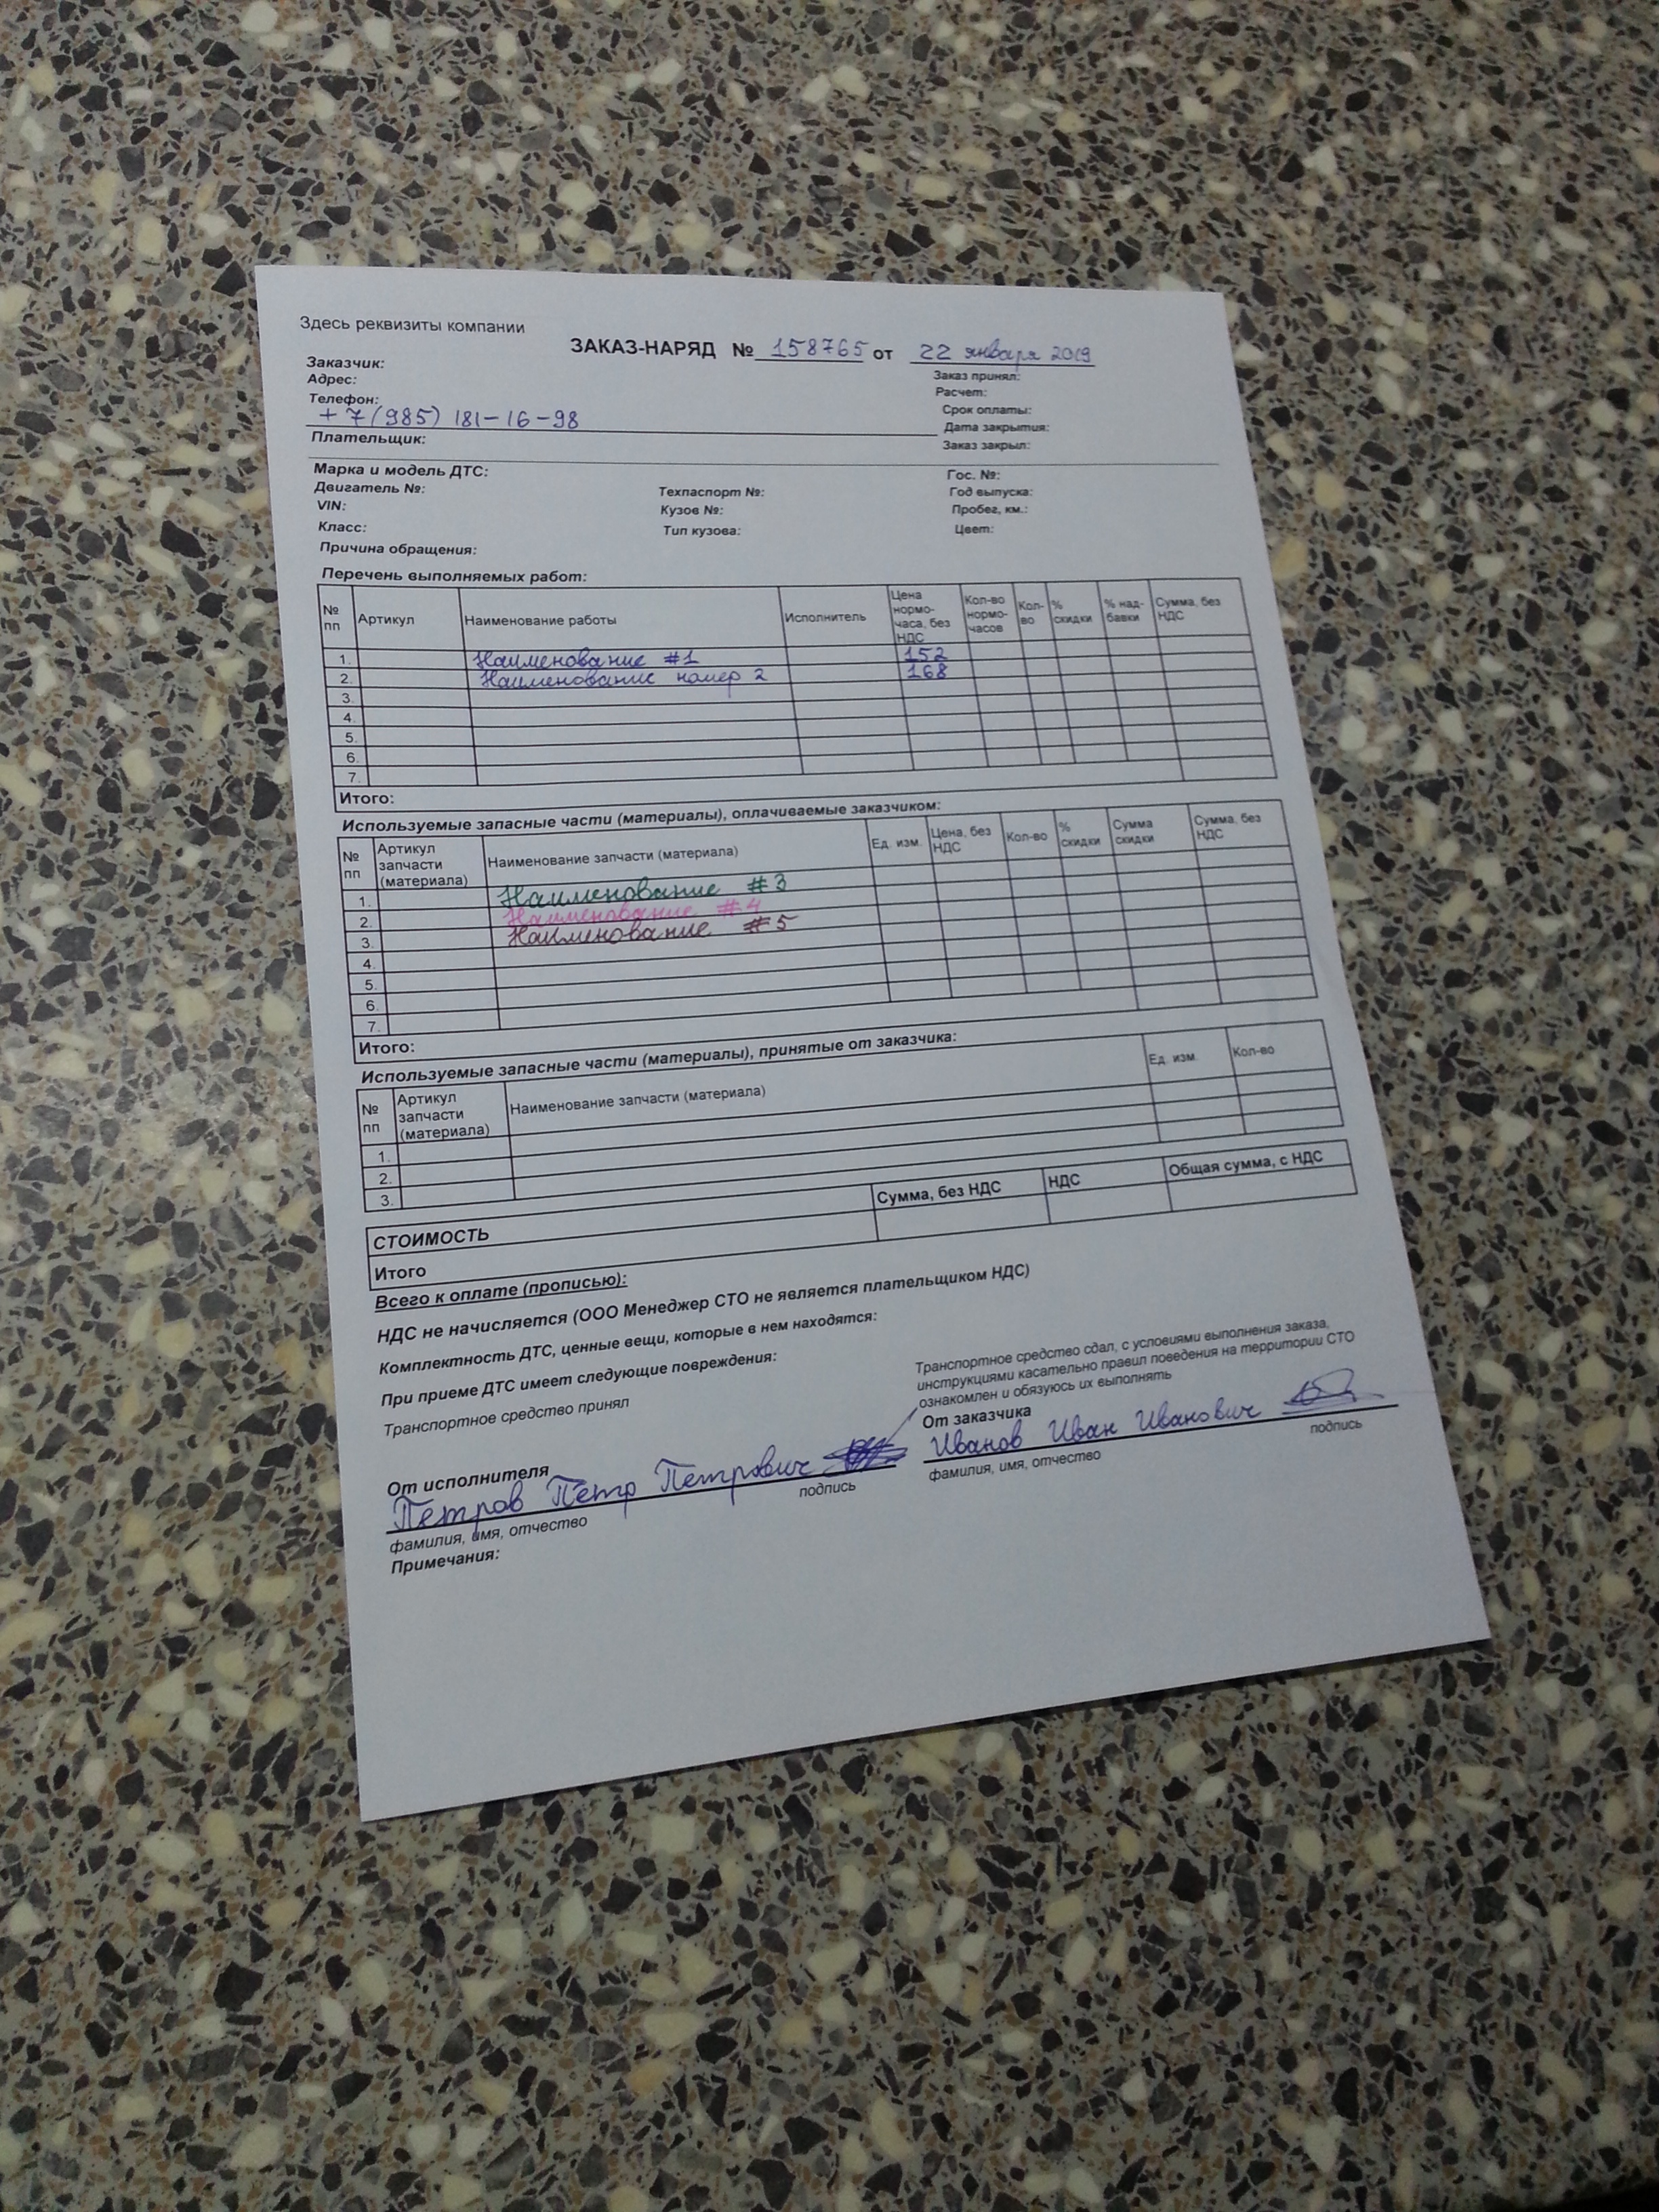 Здесь реквизиты компании
ЗАКАЗ-НАРЯД № 158765 от 22 января 2019
Заказчик:
Адрес:
Телефон:
+7(985) 181-16-98
Плательщик:
Заказ принял:
Расчет:
Срок оплаты:
Дата закрытия:
Заказ закрыл:
Марка и модель ДТС: Гос. №:
Двигатель №: Техпаспорт №: Год выпуска:
VIN: Кузов №: Пробег, км.:
Класс: Тип кузова: Цвет:
Причина обращения:
Перечень выполняемых работ:
№ пп Артикул Наименование работы Исполнитель Цена нормо-часа, без НДС Кол-во нормо-часов Кол-во % скидки % над-бавки Сумма, без НДС
1. Наименование #1 152
2. Наименование номер 2 168
3.
4.
5.
6.
7.
Итого:
Используемые запасные части (материалы), оплачиваемые заказчиком:
№ пп Артикул запчасти (материала) Наименование запчасти (материала) Ед. изм. Цена, без НДС Кол-во % скидки Сумма скидки Сумма, без НДС
1. Наименование #3
2. Наименование #4
3. Наименование #5
4.
5.
6.
7.
Итого:
Используемые запасные части (материалы), принятые от заказчика:
№ пп Артикул запчасти (материала) Наименование запчасти (материала) Ед. изм. Кол-во
1.
2.
3.
СТОИМОСТЬ Сумма, без НДС НДС Общая сумма, с НДС
Итого
Всего к оплате (прописью):
НДС не начисляется (ООО Менеджер СТО не является плательщиком НДС)
Комплектность ДТС, ценные вещи, которые в нем находятся:
При приеме ДТС имеет следующие повреждения:
Транспортное средство принял
Транспортное средство сдал, с условиями выполнения заказа,
инструкциями касательно правил поведения на территории СТО
ознакомлен и обязуюсь их выполнять
От заказчика
Иванов Иван Иванович
фамилия, имя, отчество подпись
От исполнителя
Петров Петр Петрович
фамилия, имя, отчество подпись
Примечания: